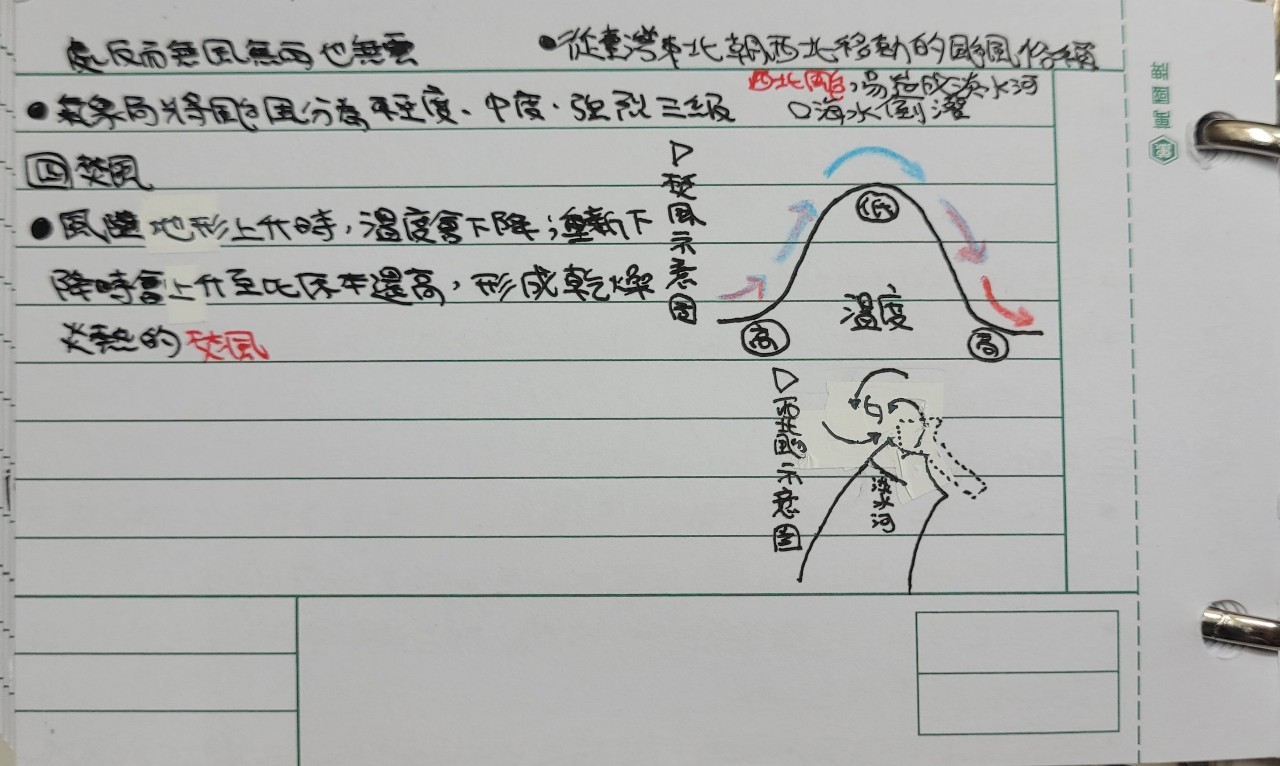 處反而無風無雨也無雲
●從臺灣東北朝西北移動的颱風俗稱
西北颱,易造成淡水河
口海水倒灌
●氣象局將颱風分為輕度、中度、強烈三級
四 焚風
●風隨地形上升時,溫度會下降;重新下
降時會上升至比原本還高,形成乾燥
炎熱的焚風
▷焚風示意圖
低
高
溫度
高
示意圖
淡水河
萬國牌